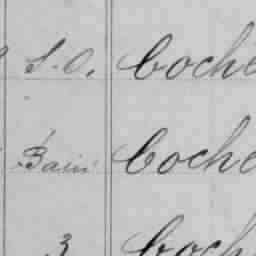 S.O. Coche
Bain Coche
3 Coch